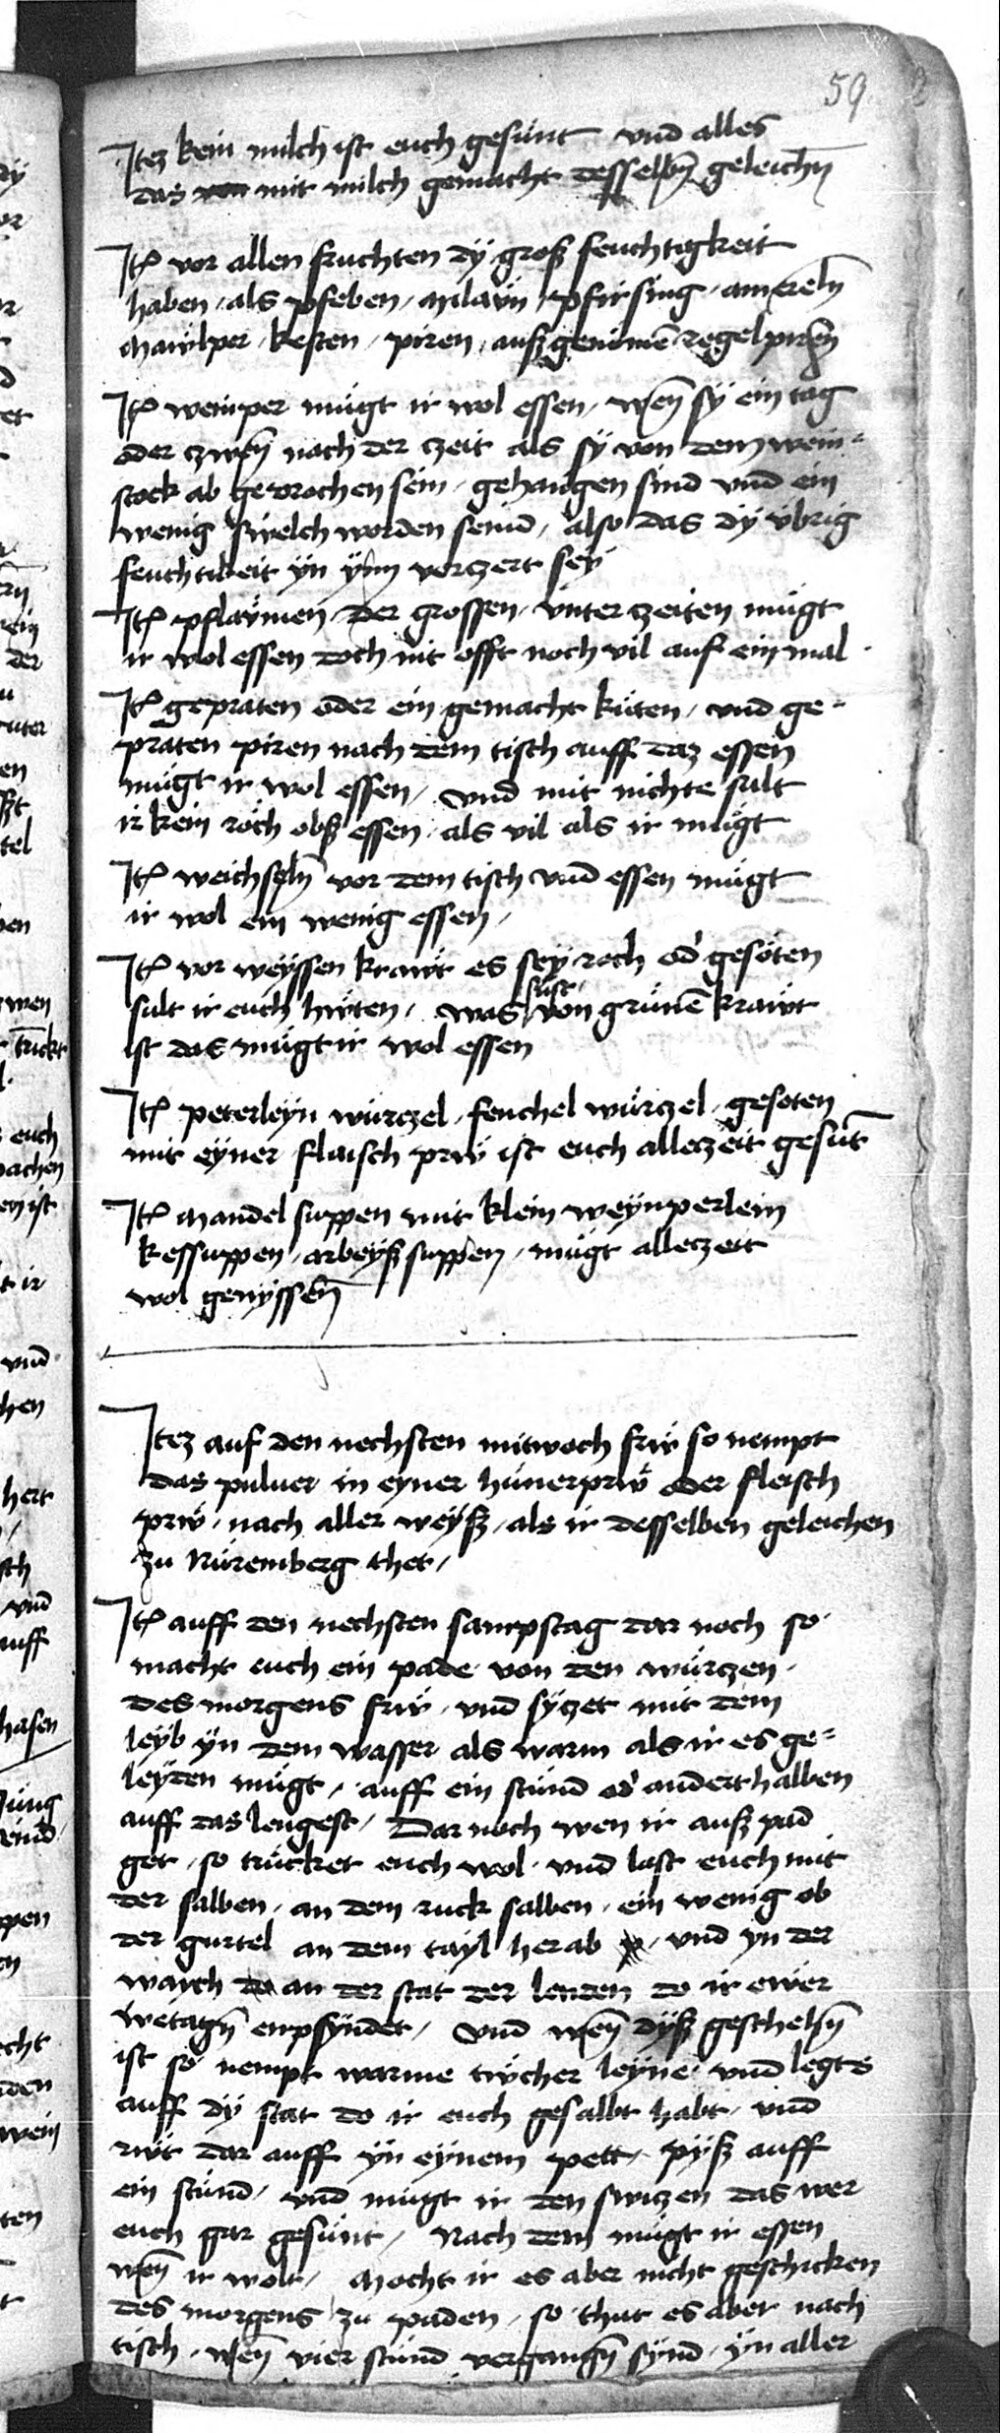 59
Itez kein milch ist euch gesünt vnd alles
das von mit milch gemacht desselbñ geleichñ
Itꝫ vor allen fruchten dÿ groß feuchtigkeit
haben, als pfeben, milaün, pfirsing, amereln̄
Mawlper, kesten, piren, außgenomē regelpirn̄
Itꝫ weinper mügt ir wol essen, wen̄ sÿ ein tag
oder czwen̄ noch der czeit als sÿ von dem wein-
stock ab geprochen sein, gehangen sind vnd ein
wenig swelch worden seind, also das dÿ vbrig
feuchtikeit ÿn ÿnn verczert seÿ
Itꝫ pflaümen der grossen, vnter czeiten mügt
ir wol essen doch nit offt noch vil auf ein mal
Itꝫ gepraten oder ein gemacht küten, vnd ge-
praten piren nach dem tisch auff daz essen
mügt ir wol essen, vnd mit nichte sult
ir kein röch obß essen, als vil als ir mügt
Itꝫ weichseln̄ vor dem tisch vnd essen mügt
ir wol ein wenig essen,
Itꝫ vor weÿssen krawt es seÿ roch od' gesöten
sult ir euch hüten, was süst von grünē krawt
ist das mügt ir wol essen
Itꝫ peterleÿn würczel, feuchel würczel, gesoten
mit eÿner flaisch prw̋ ist euch alleczeit gesūt
Itꝫ Mandel suppen mit klein weÿnperlein
kessuppen, arbeÿß suppen, mügt alleczeit
wol genÿssen̄
Itez auf den nechsten mitwoch frw̋ so nempt
das puluer in eyner hünerprw̋ oder fleisch
prw̋, nach aller weÿß, als ir desselben geleichen
zu Nüremberg thet,
Itꝫ auff den nechsten sampstag dar noch so
macht euch ein pade von den würczen,
des morgens frw̋, vnd sÿczet mit dem
leÿb ÿn dem wasser als warm als ir es ge-
leÿden mügt, auff ein stünd od' anderthalben
auff das lengest, Dar noch wen ir auß pad
get, so trücket euch wol, vnd last euch mit
der salben, an dem ruck salben, ein wenig ob
der gurtel an dem tayl herab, vnd ÿn der
waych do an der stat der lenden do ir ewer
wetagn̄ enpfÿndet, vnd wen̄ dÿß geschehn̄
ist so nempt warme tücher leÿne, vnd legts
auff dÿ stat do ir euch gesalbt habt, vnd
rwt dar auff ÿn eÿnem pett, pÿß auff
ein stünd, vnd mügt ir den swiczen das wer
euch gar gesünt, Nach dem mügt ir essen
wen̄ ir wolt, Mocht ir es aber nicht geschicken
des morgens zu paden, so thut es aber nach
tisch, wen̄ vier stünd vergangn̄ sÿnd, ÿn aller